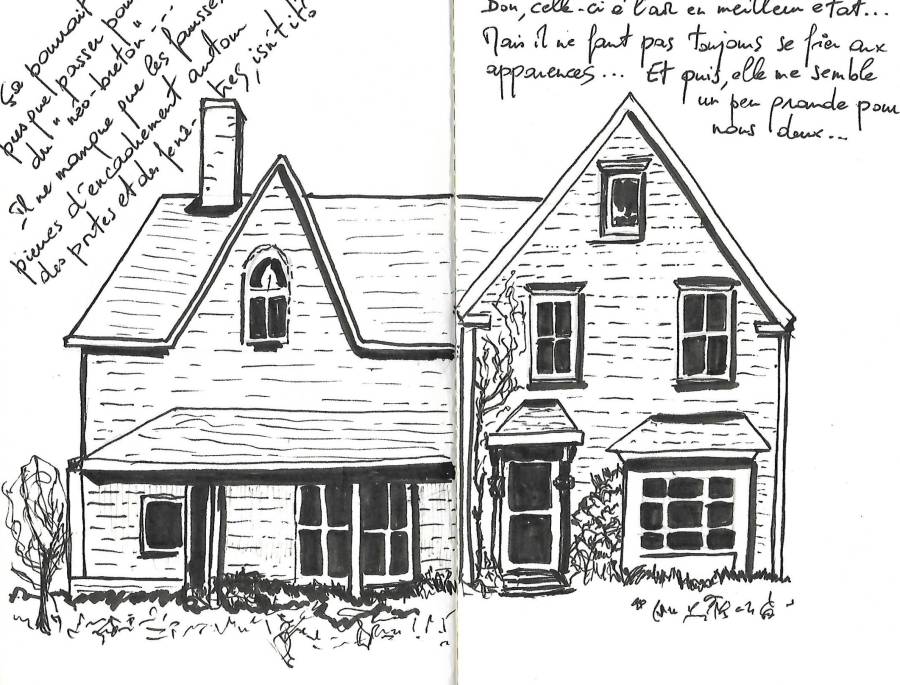 Ça pourrait
presque passer pour
du "néo-breton"...
Il ne manque que les fausses
pierres d'encadrement autour
des portes et des fenê-tres, isn't it?
Bon, celle-ci à l'air en meilleur état...
Mais il ne faut pas toujours se fier aux
apparences... Et puis, elle me semble
un peu grande pour
nous deux...